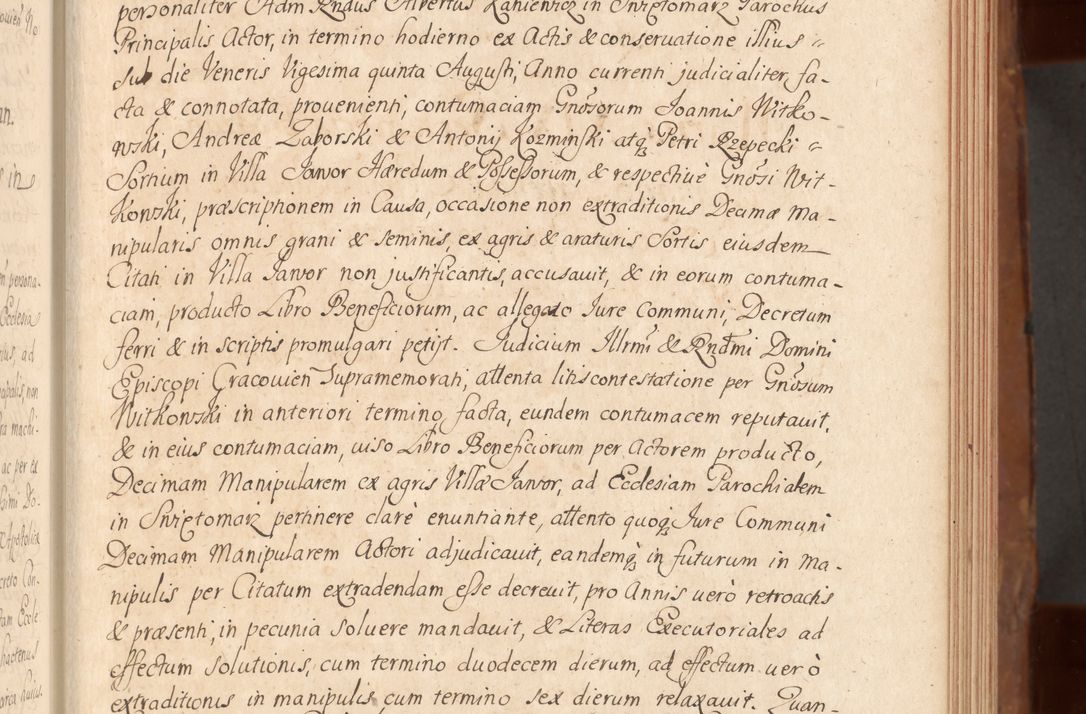 personaliter Adm Rndus Albertus Kaniewicz in Swiętomarz Parochus
Principalis Actor, in termino hodierno ex Actis & conseruatione illius
sub die Veneris Vigesima quinta Augusti, Anno currenti judicialiter, fa-
cta & connotata, prouenienti, contumaciam Gnosorum Joannis Witko-
wski, Andreæ Zaborski & Antonij Kozminski atq Petri Rzepecki
Sortium in Villa Jawor Hæredum & Possessorum, & respectiuè Gnosi Wit-
kowski, præscriptionem in Causa, occasione non extraditionis Decimæ Ma-
nipularis omnis grani & seminis, ex agris & araturis Sortis eiusdem
Citati in Villa Jawor non justificantis, accusauit, & in eorum contuma-
ciam, producto Libro Beneficiorum, ac allegato Jure Communi, Decretum
ferri & in scriptis promulgari petijt. Judicium Illrmi & Rndmi Domini
Episcopi Cracouien Supramemorati, attenta litiscontestatione per Gnosum
Witkowski in anteriori termino facta, eundem contumacem reputauit,
& in eius contumaciam, uiso Libro Beneficiorum per Actorem producto,
Decimam Manipularem ex agris Villæ Jawor, ad Ecclesiam Parochialem
in Swiętomarz pertinere clarè enuntiante, attento quoq Jure Communi
Decimam Manipularem Actori adjudicauit, eandemq in futurum in Ma-
nipulis per Citatum extradendam esse decreuit, pro Annis uerò retroactis
& præsenti, in pecunia soluere mandauit, & Literas Executoriales ad
effectum solutionis, cum termino duodecem dierum, ad effectum uerò
extraditionis in manipulis, cum termino sex dierum relaxauit. Quan-